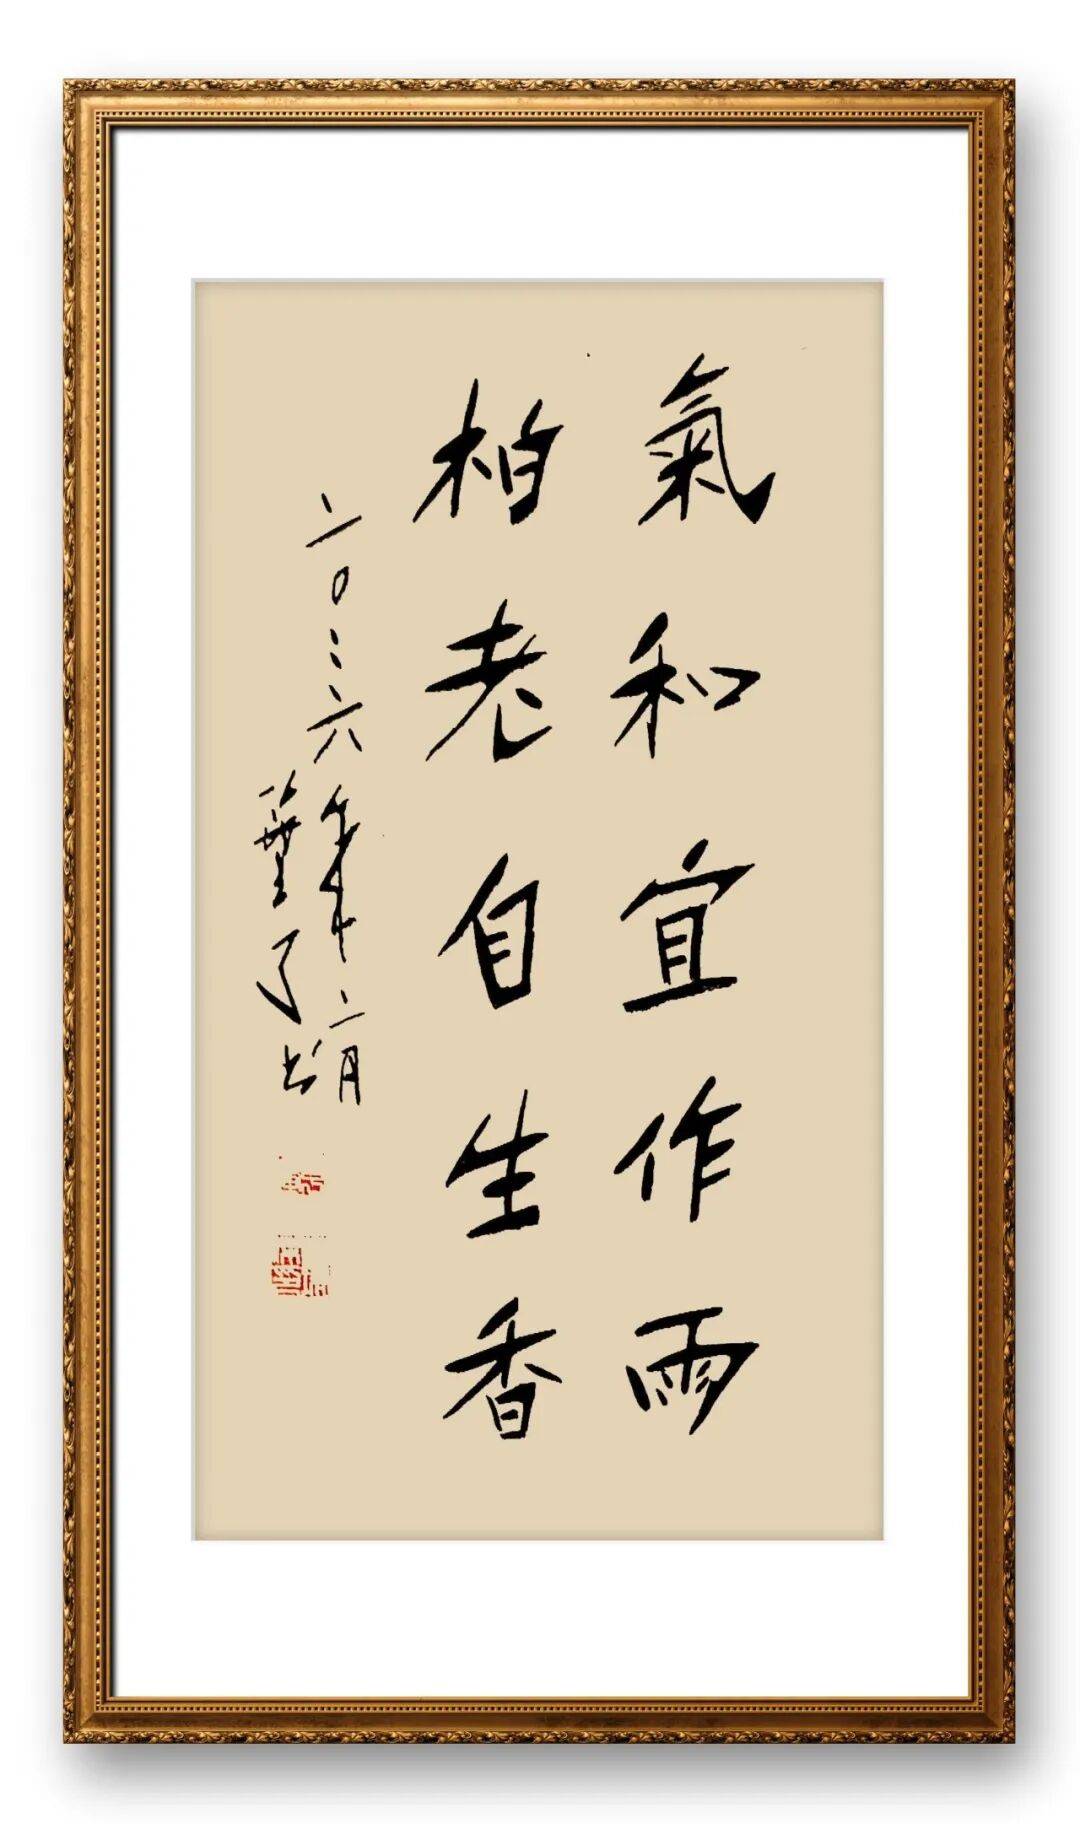 氣和宜作雨
柏老自生香
二〇二六年二月
葉子書